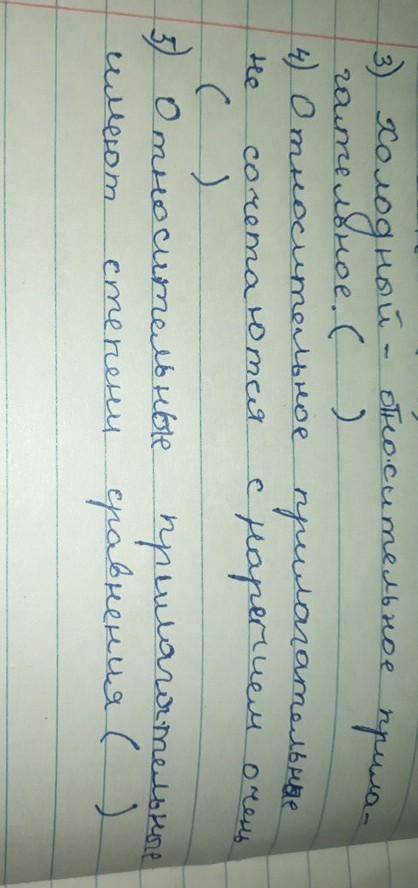 3) Холодный - относительное прила-
гательное. ( )
4) Относительное прилагательные
не сочетаются с наречием очень
( )
5) Относительные прилагательные
имеют степени сравнения ( )